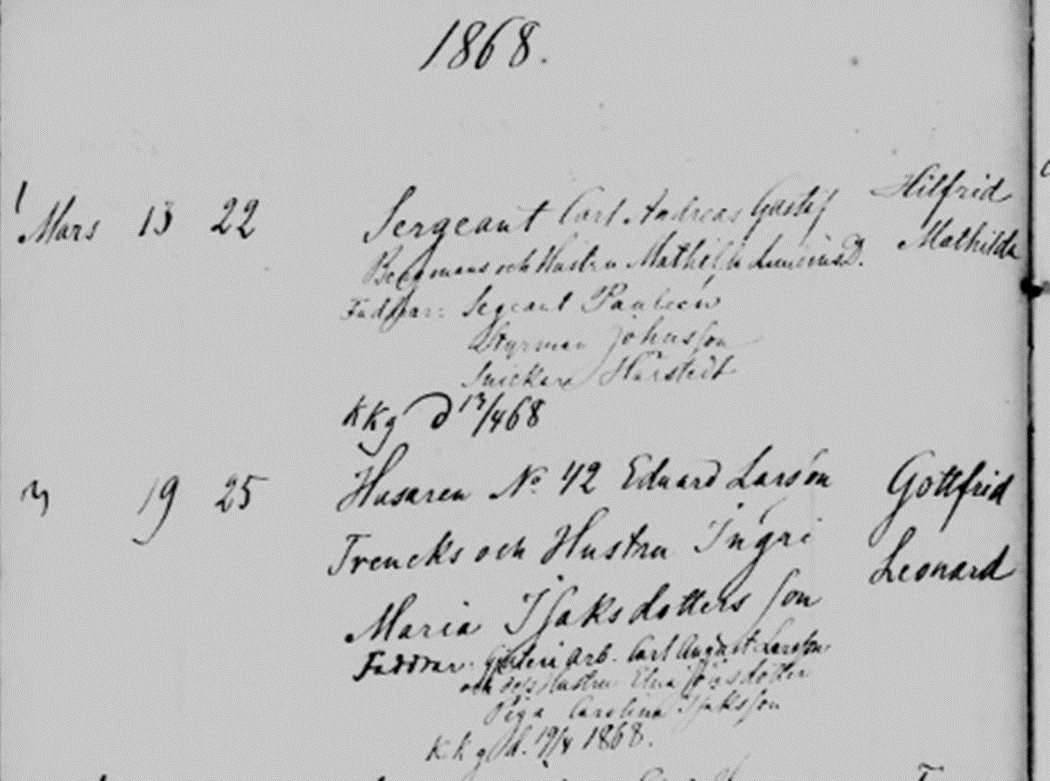 1868.
Mars 13 22 Sergeant Carl Andreas Gustaf Hilfrid
Bergmans och Hustru Mathilda D. Mathilda
Faddrar: Sergeant
Styrman Johnsson
Snickare
KKg d 13/4 68
19 25 Husaren No. 42 Eduard Larson Gottfrid
Trencks och Hustru Ingri Leonard
Maria Isaksdotters son
Faddrar: Arb. Carl August Larsson
och dess Hustru Elna
Piga Carolina Isaksson
K.k.g. d. 19/4 1868.